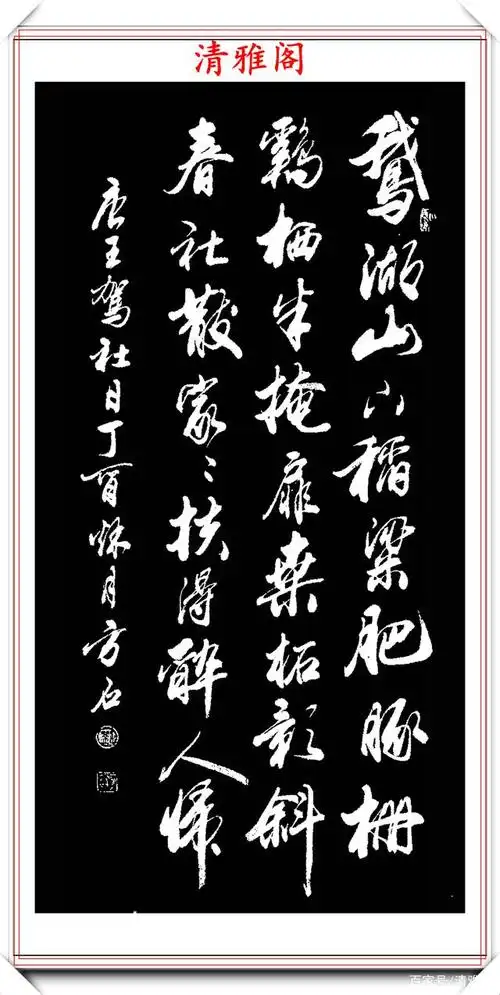 清雅阁
鹅湖山下稻粱肥豚栅
鸡栖半掩扉桑柘影斜
春社散家々扶得醉人归
唐王驾社日丁酉秋月方石
百家号/清雅